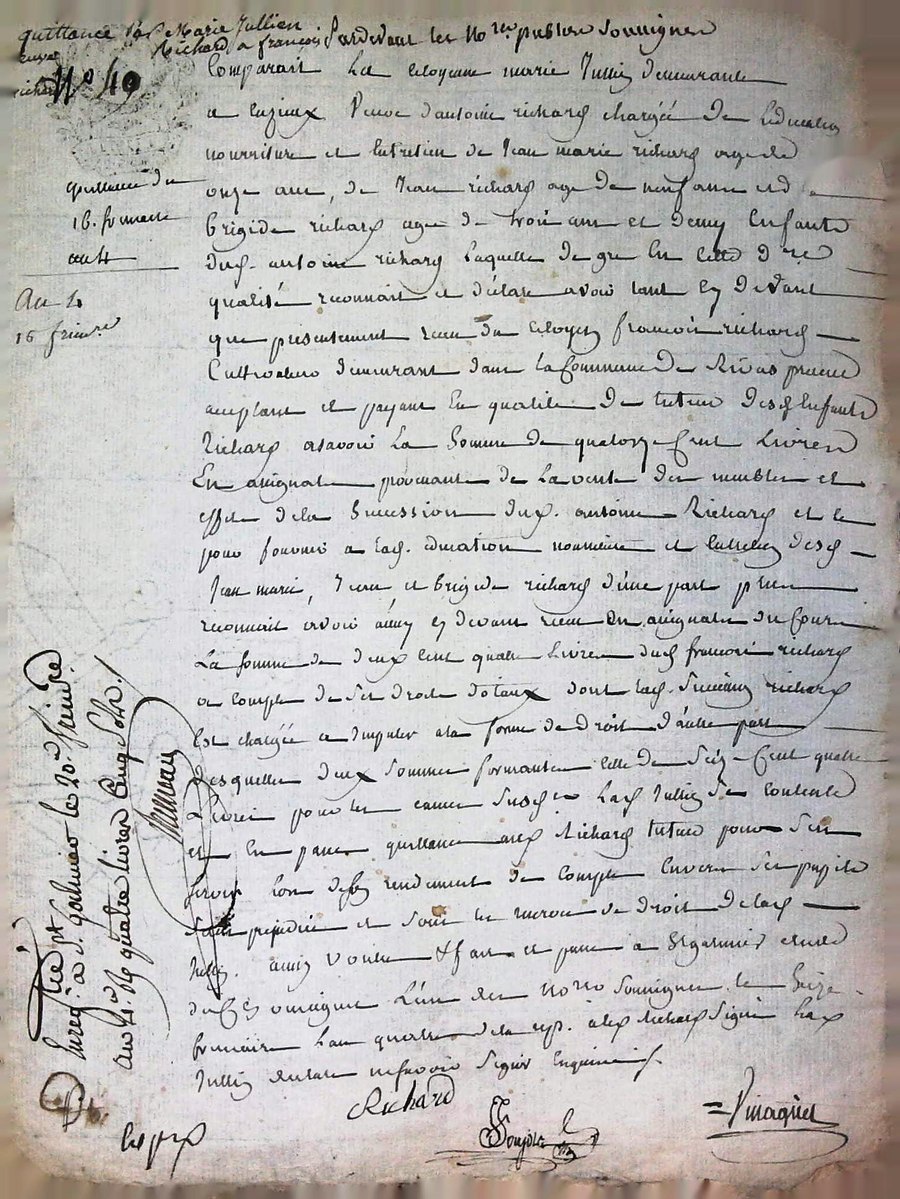 quittance Marie Jullien
Richard a françois
No 49
quittance du
16. frimaire
an 4
An 4
16 frimre
Pardevant les Notres publics soussignés
Comparait La citoyenne marie Jullien demeurante
a Veuve d'antoine richard chargée de Leducation
nourriture et Entretien de Jean marie richard agé de
onze ans, de Jean richard agé de neuf ans et de
brigide richard agée de trois ans et demy Enfants
dud. antoine richard Laquelle de gré En cette d
qualité reconnait et déclare avoir tant cy devant
que présentement recu du citoyen françois richard
Cultivateur demeurant dans la Commune de Rivas présent
acceptant et payant En qualité de tuteur desd Enfants
Richard asavoir La Somme de quatorze Cent Livres
En assignats provenants de La vente des meubles et
effets de la Succession dud. antoine Richard et ce
pour fournir a lad. education nourriture et Entretien desd
Jean marie, Jean et brigide richard d'une part plus
reconnait avoir aussy cy devant recu En assignats du Cours
La somme de deux Cent quatre Livres dud françois richard
a compte de ses droits dotaux dont lad. richard
Est chargée a Imputer a la forme de droit d'autre part
Lesquelles deux Sommes formantes Celle de Seize Cent quatre
Livres pour les causes Susd Lad Jullien Se Contente
et En passe quittance aud Richard tuteur pour Servir
lors de son rendement de Compte Envers Ses pupils
Sans préjudice et Sous la de droit de lad
Jullien. ainsy voulu fait et passé a St galmier Etude
du Cn Souvigne L'un des Notres Soussignés le Seize
frimaire L'an quatre de la rep. Led Richard Signé Lad
Jullien declare ne savoir Signer Enquise
Richard
Pinaquet
Enreg. a St. Galmier le 20. frimre
an 4. quatre livres Cinq Sols